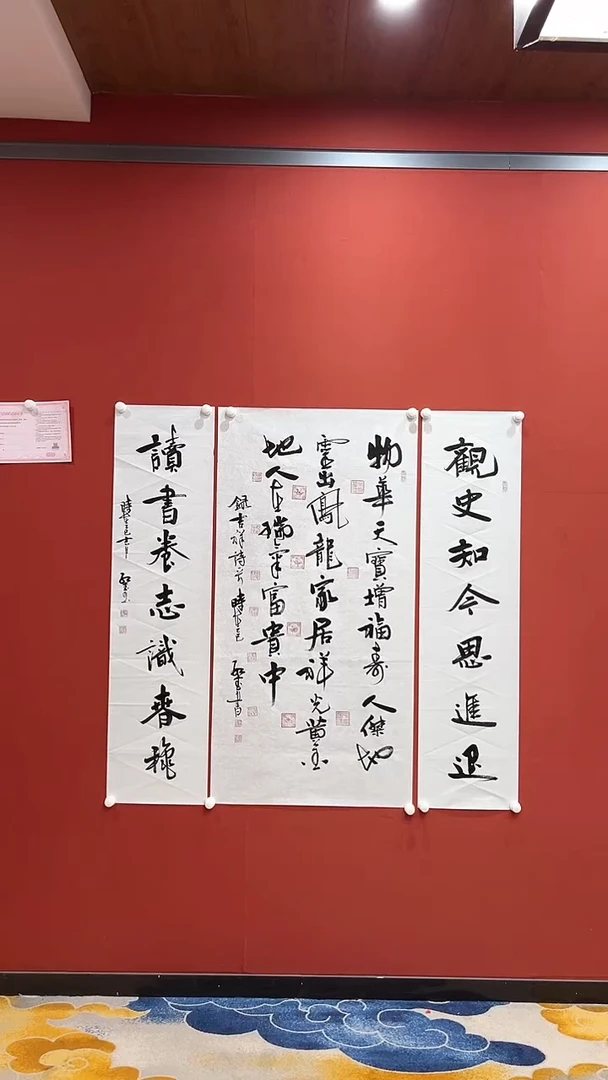 觀史知今思進退
物華天寶增福壽人傑地
靈出鳳龍家居祥光黃金
地人在瑞氣富貴中
錄吉祥詩
讀書養志識春穐